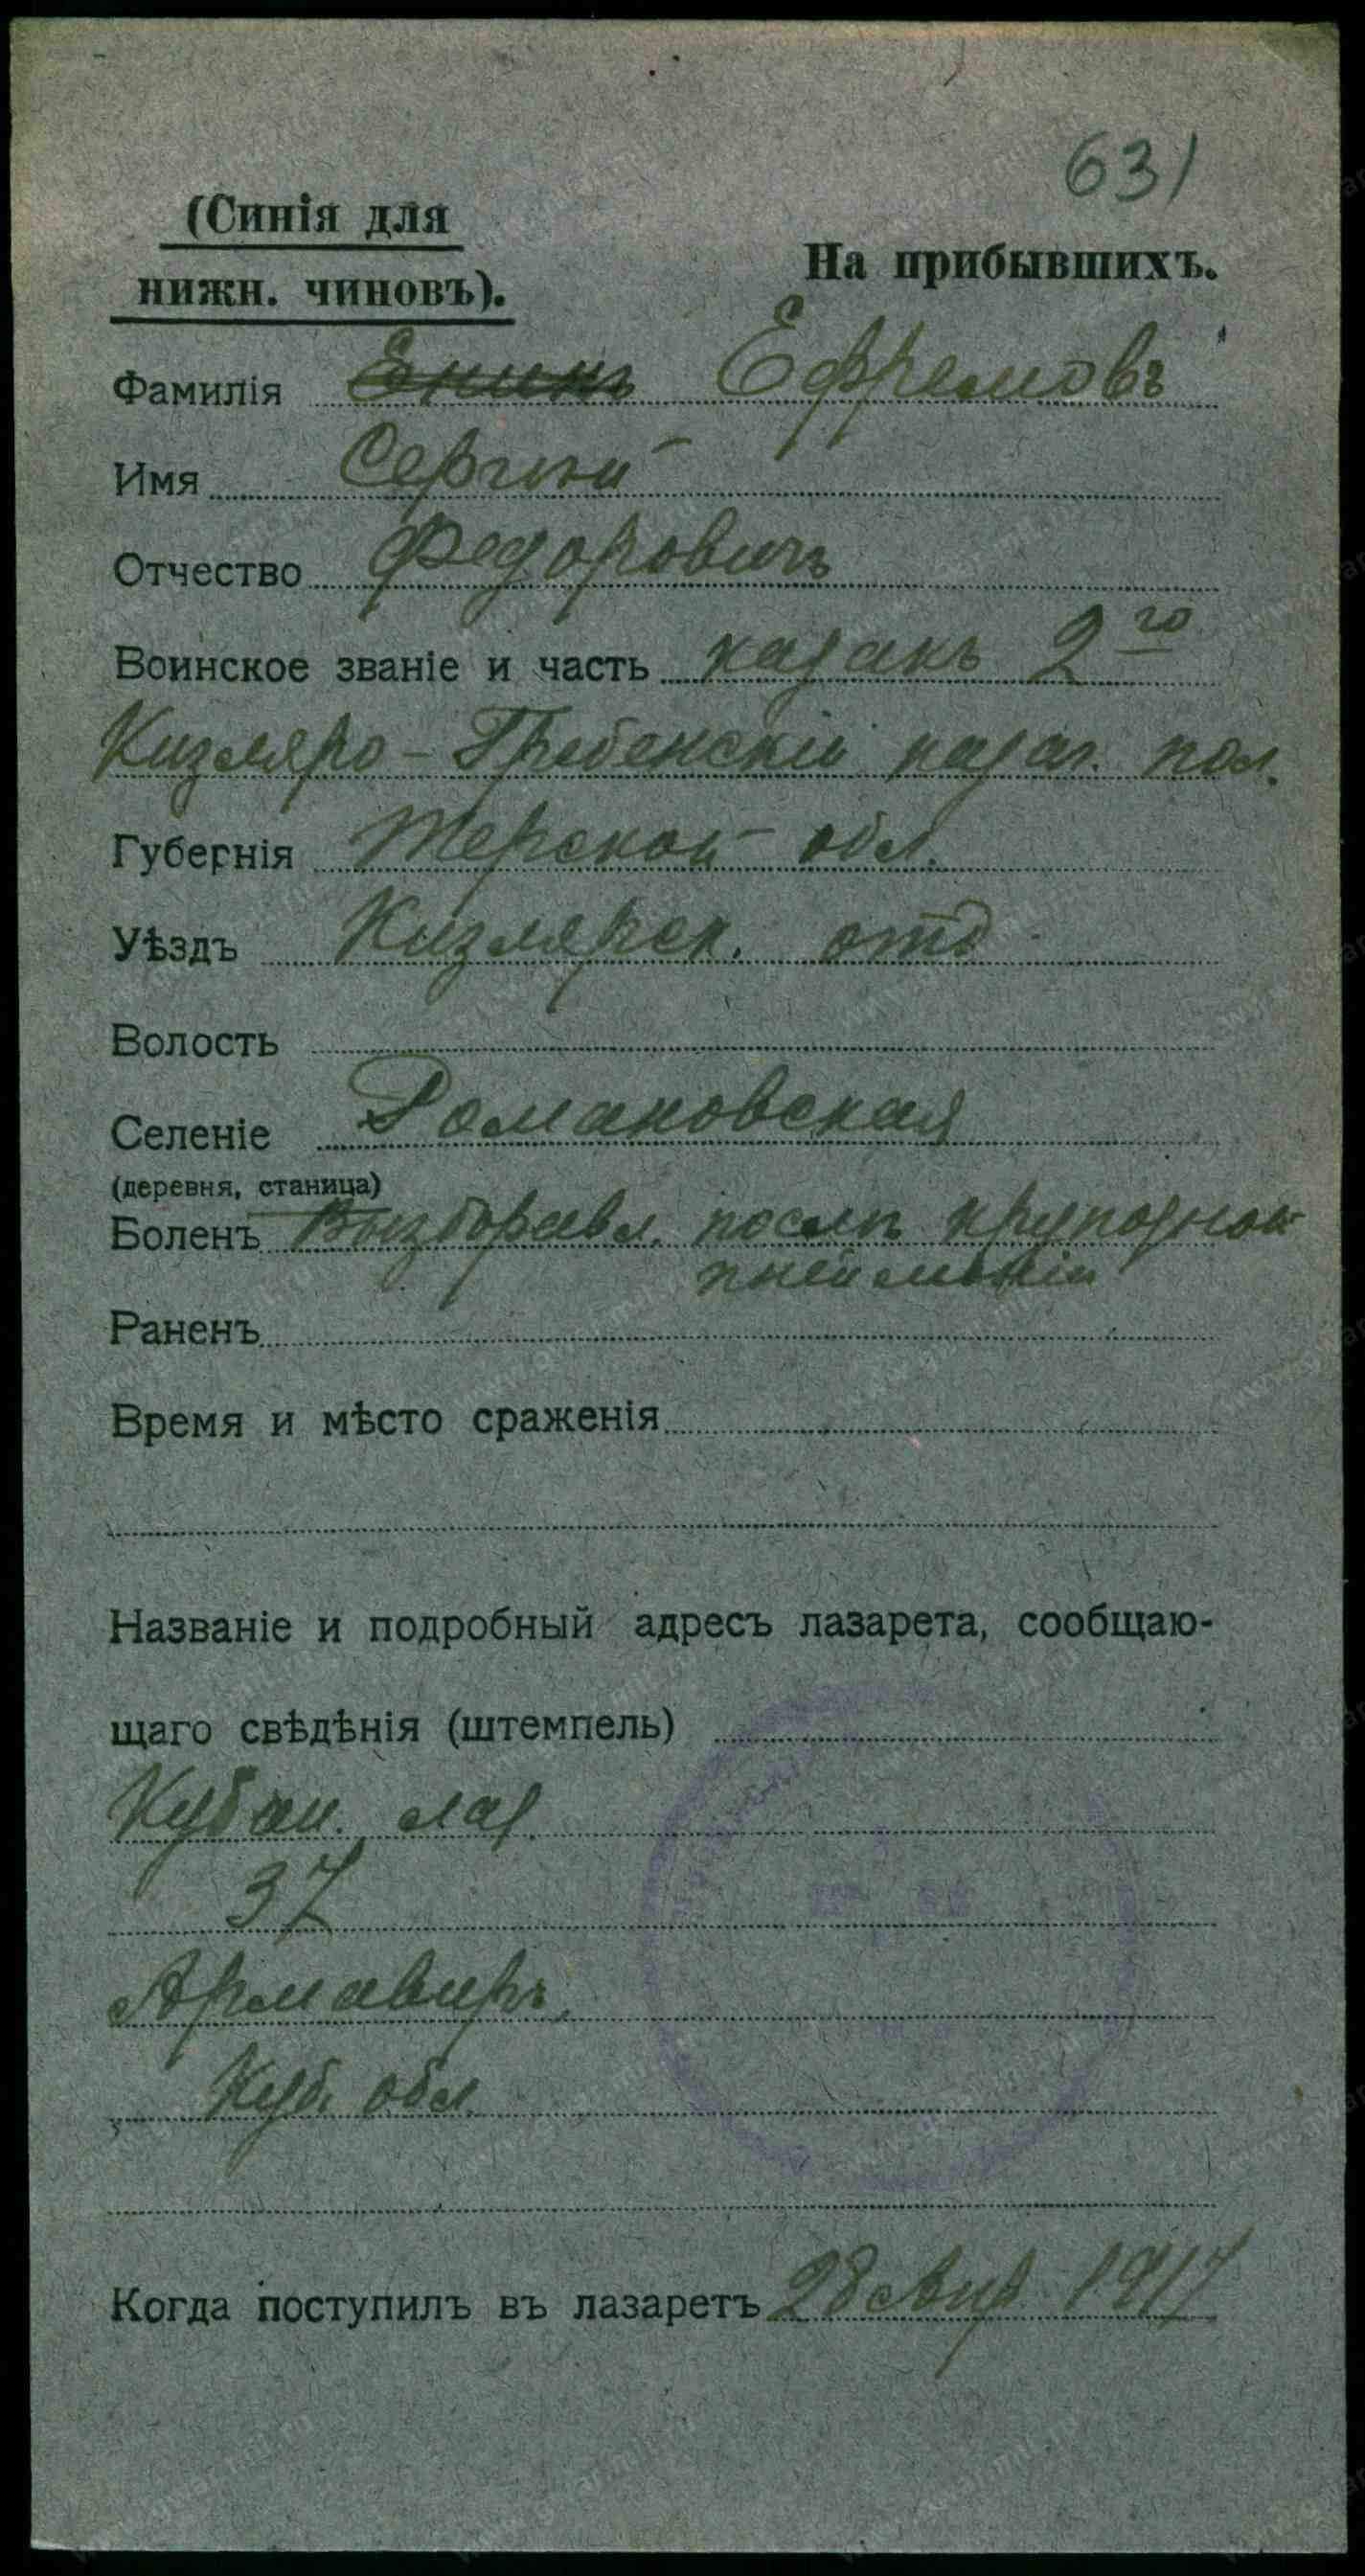 631
(Синія для
На прибывшихъ.
нижн. чиновъ).
Фамилія Енинъ Ефремовъ
Имя Сергѣй
Отчество Федоровичъ
Воинское званіе и часть казакъ 2го
Кизляро-Гребенскій казач. пол.
Губернія Терской обл.
Уѣздъ Кизлярск. отд
Волость
Селеніе Романовская
(деревня, станица)
Боленъ Выздоравл. послѣ крупозной
пнеймоніи
Раненъ
Время и мѣсто сраженія
Названіе и подробный адресъ лазарета, сообщаю-
щаго свѣдѣнія (штемпель)
Кубан. лаз.
37
Армавиръ,
Куб. обл.
Когда поступилъ въ лазаретъ 28 Апр 1917